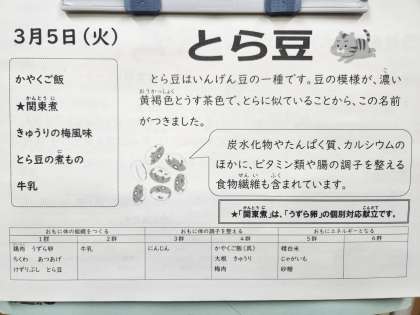 3月5日(火)
とら豆
かやくご飯
★関東煮
きゅうりの梅風味
とら豆の煮もの
牛乳
とら豆はいんげん豆の一種です。豆の模様が、濃い
黄褐色とうす茶色で、とらに似ていることから、この名前
がつきました。
炭水化物やたんぱく質、カルシウムの
ほかに、ビタミン類や腸の調子を整える
食物繊維も含まれています。
★「関東煮」は、「うずら卵」の個別対応献立です。
おもに体の組織をつくる おもに体の調子を整える おもにエネルギーとなる
1群 2群 3群 4群 5群 6群
鶏肉 うずら卵 牛乳 にんじん かやくご飯(具) 精白米
ちくわ あつあげ 大根 きゅうり じゃがいも
けずりぶし とら豆 梅肉 砂糖